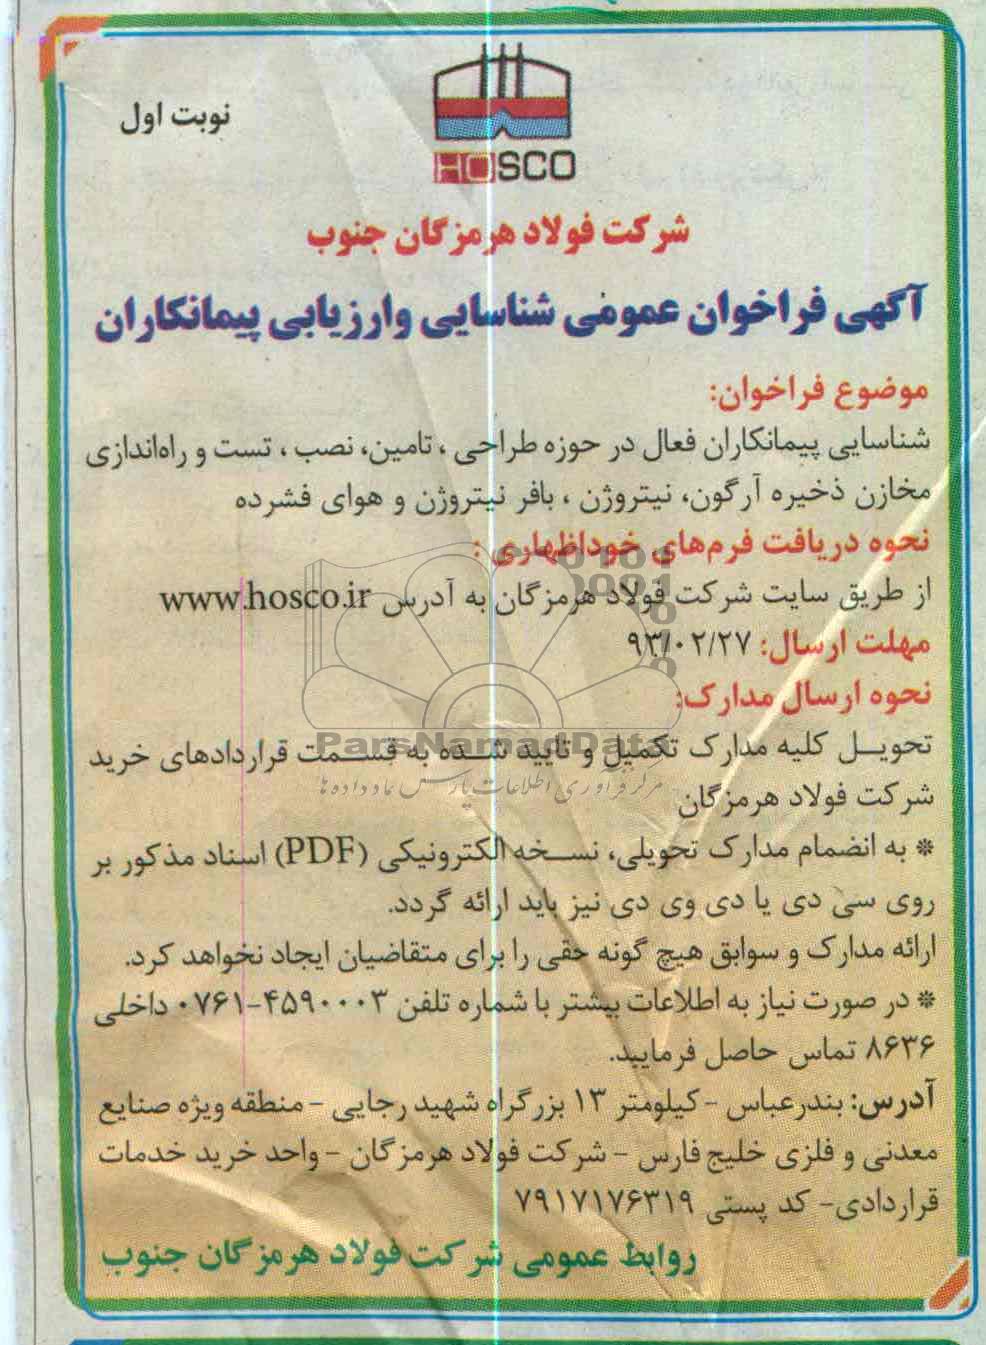 نوبت اول
HOSCO
شرکت فولاد هرمزگان جنوب
آگهی فراخوان عمومی شناسایی وارزیابی پیمانکاران
موضوع فراخوان:
شناسایی پیمانکاران فعال در حوزه طراحی ، تامین، نصب ، تست و راه‌اندازی
مخازن ذخیره آرگون، نیتروژن ، بافر نیتروژن و هوای فشرده
نحوه دریافت فرم‌های خوداظهاری :
از طریق سایت شرکت فولاد هرمزگان به آدرس www.hosco.ir
مهلت ارسال: ۹۳/۰۲/۲۷
نحوه ارسال مدارک:
تحویل کلیه مدارک تکمیل و تایید شده به قسمت قراردادهای خرید
شرکت فولاد هرمزگان
ParsNamadData
مرکز فرآوری اطلاعات پارس نماد داده ها
* به انضمام مدارک تحویلی، نسخه الکترونیکی (PDF) اسناد مذکور بر
روی سی دی یا دی وی دی نیز باید ارائه گردد.
ارائه مدارک و سوابق هیچ گونه حقی را برای متقاضیان ایجاد نخواهد کرد.
* در صورت نیاز به اطلاعات بیشتر با شماره تلفن ۴۵۹۰۰۰۳-۰۷۶۱ داخلی
۸۶۳۶ تماس حاصل فرمایید.
آدرس: بندرعباس - کیلومتر ۱۳ بزرگراه شهید رجایی - منطقه ویژه صنایع
معدنی و فلزی خلیج فارس - شرکت فولاد هرمزگان - واحد خرید خدمات
قراردادی- کد پستی ۷۹۱۷۱۷۶۳۱۹
روابط عمومی شرکت فولاد هرمزگان جنوب